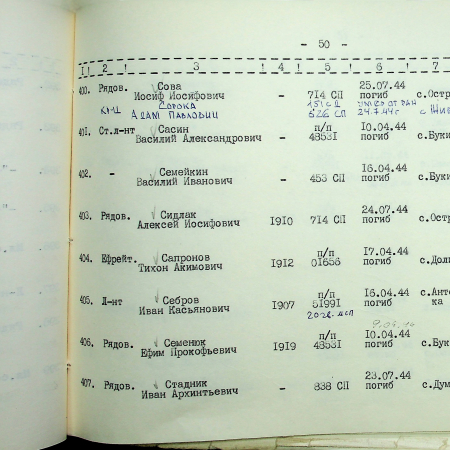 - 50 -
1 ! 2 ! 3 ! 4 ! 5 ! 6 ! 7
400. Рядов. Сова Иосиф Иосифович - 714 СП 25.07.44 погиб с.Остр
Сорока Адам Павлович 151 СД 626 СП умер от ран 24.7.44г с
401. Ст.л-нт Сасин Василий Александрович - п/п 48531 10.04.44 погиб с.Буки
402. - Семейкин Василий Иванович - 453 СП 16.04.44 погиб с.Буки
403. Рядов. Сидлак Алексей Иосифович 1910 714 СП 24.07.44 погиб с.Остр
404. Ефрейт. Сапронов Тихон Акимович 1912 п/п 01656 17.04.44 погиб с.Доли
405. Л-нт Себров Иван Касьянович 1907 п/п 51991 16.04.44 погиб с.Анто ка
406. Рядов. Семенюк Ефим Прокофьевич 1919 п/п 48531 10.04.44 погиб с.Бук
407. Рядов. Стадник Иван Архинтьевич - 838 СП 23.07.44 погиб с.Дум